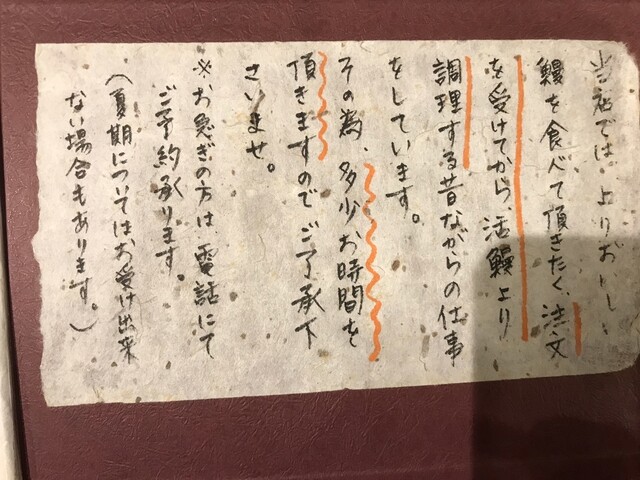 当店では、よりおいしい
鰻を食べて頂きたく、注文
を受けてから、活鰻より
調理する昔ながらの仕事
をしています。
その為、多少お時間を
頂きますのでご了承下
さいませ。
※お急ぎの方は電話にて
ご予約承ります。
(夏期についてはお受け出来
ない場合もあります。)